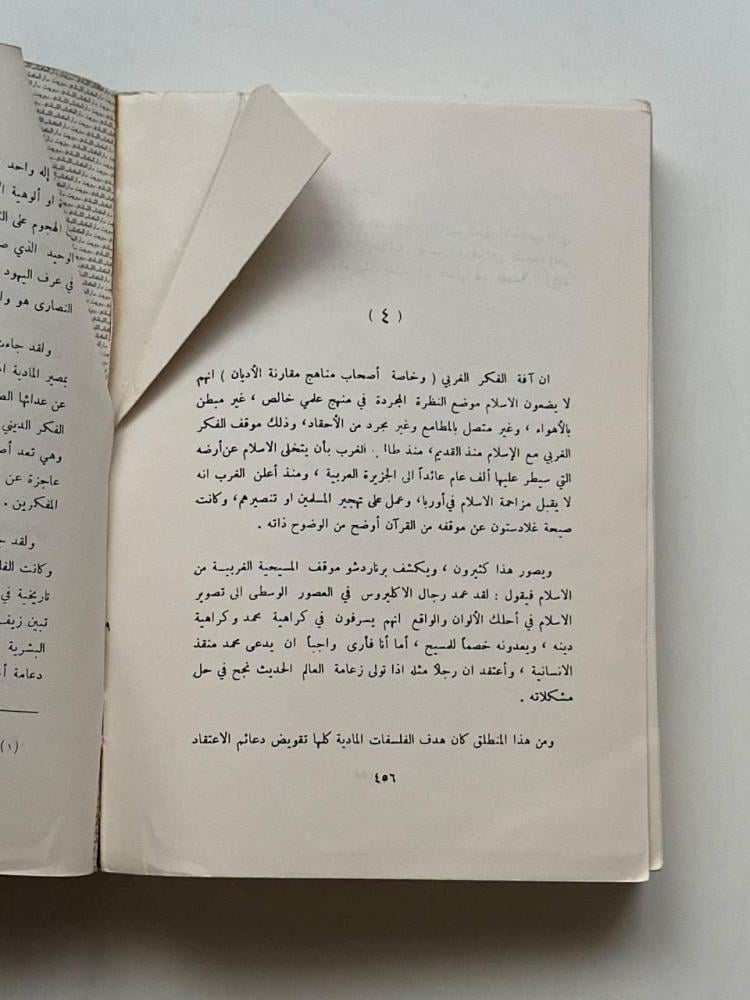 ( ٤ )
ان آفة الفكر الغربي ( وخاصة أصحاب مناهج مقارنة الأديان ) انهم
لا يضعون الاسلام موضع النظرة المجردة في منهج علمي خالص ، غير مبطن
بالأهواء ، وغير متصل بالمطامع وغير مجرد من الأحقاد، وذلك موقف الفكر
الغربي مع الإسلام منذ القديم، منذ الغرب بأن يتخلى الاسلام عن أرضه
التي سيطر عليها ألف عام عائداً الى الجزيرة العربية ، ومنذ أعلن الغرب انه
لا يقبل مزاحمة الاسلام في أوربا، وعمل على تهجير المسلمين او تنصيرهم، وكانت
صيحة غلادستون عن موقفه من القرآن أوضح من الوضوح ذاته .
ويصور هذا كثيرون ، ويكشف برناردشو موقف المسيحية الغربية من
الاسلام فيقول : لقد عمد رجال الاكليروس في العصور الوسطى الى تصوير
الاسلام في أحلك الألوان والواقع انهم يسرفون في كراهية محمد وكراهية
دينه ، ويعدونه خصماً للمسيح ، أما أنا فأرى واجباً ان يدعى محمد منقذ
الانسانية ، وأعتقد ان رجلا مثله اذا تولى زعامة العالم الحديث نجح في حل
مشكلاته .
ومن هذا المنطلق كان هدف الفلسفات المادية كلها تقويض دعائم الاعتقاد
٤٥٦
إله واحد
او ألوهية
الهجوم على
الوحيد الذي
في عرف اليهود
النصارى هو
ولقد جاءت
بمصير المادية
عن عدائها
الفكر الديني
وهي تعد
عاجزة عن
المفكرين .
ولقد
وكانت
تاريخية في
تبين زيف
البشرية
دعامة
(١)